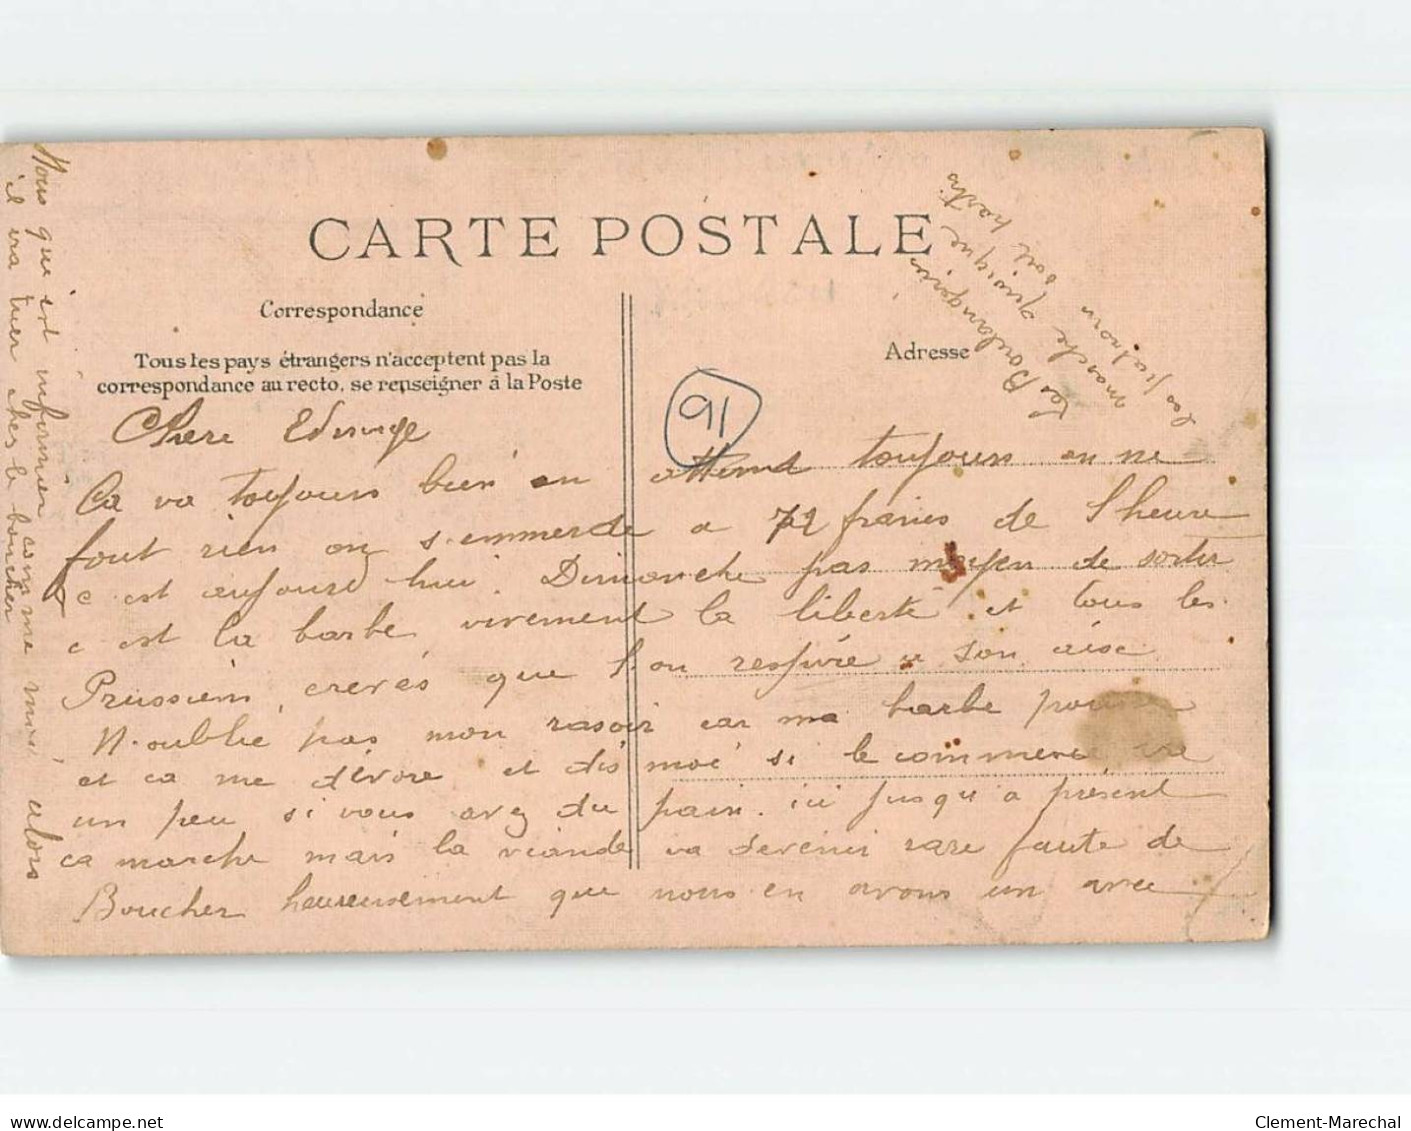 CARTE POSTALE
Correspondance
Tous les pays étrangers n'acceptent pas la
correspondance au recto, se renseigner à la Poste
Adresse
91
Chere Edwige
Ca va toujours bien on attend toujours on ne
fout rien on s.emmerde a 72 francs de l heure
c est aujourd hui Dimanche pas moyen de sortir
c est la barbe vivement la liberté et tous les
Prussiens crevés que l.on respire a son aise
N.oublie pas mon rasoir car ma barbe pousse
et ca me dévore et dis moi si le commerce va
un peu si vous avez du pain. ici jusqu a présent
ca marche mais la viande va devenir rare faute de
Boucher heureusement que nous en avons un avec
Nous qui est infirmier comme moi, alors
il ira tuer chez le boucher
La Boulangerie
marche quoique
soit partis